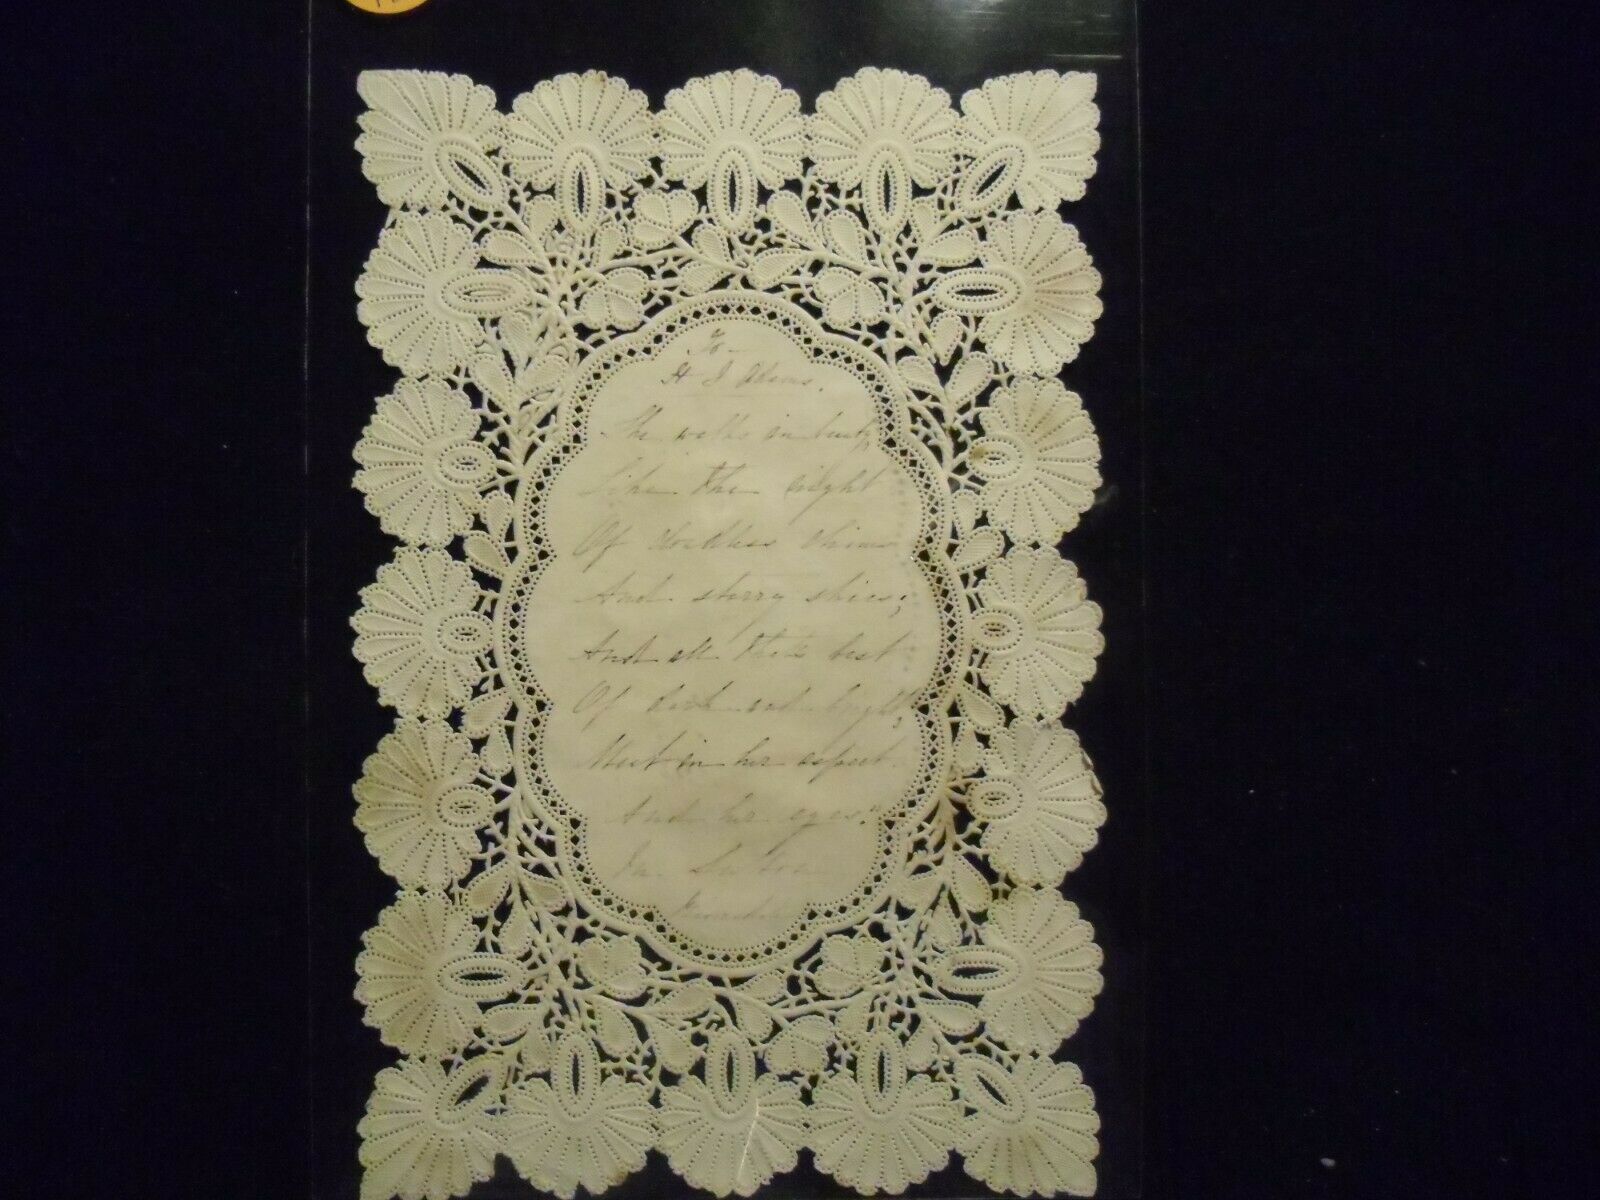 To
H J Adams.
She walks in beauty,
Like the night
Of cloudless climes
And starry skies;
And all that's best
Of dark and bright,
Meet in her aspect
And her eyes."